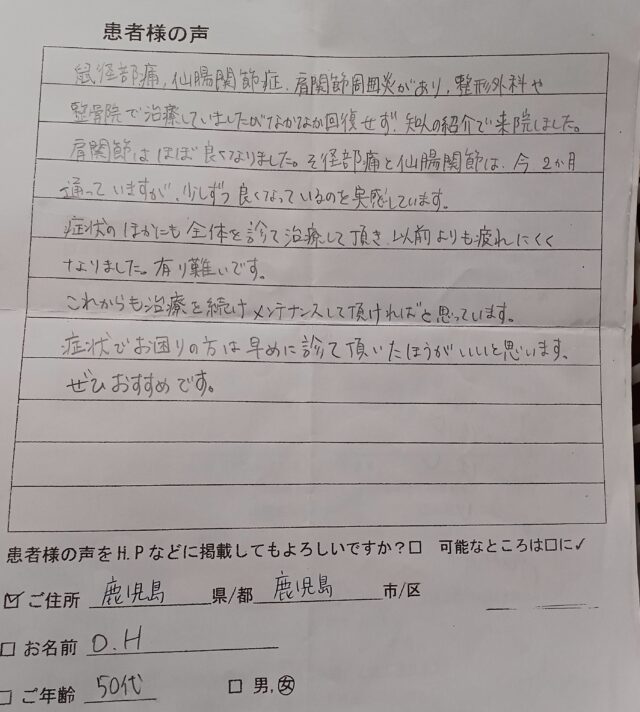 患者様の声
鼠径部痛、仙腸関節症、肩関節周囲炎があり、整形外科や
整骨院で治療していましたがなかなか回復せず、知人の紹介で来院しました。
肩関節はほぼ良くなりました。そ径部痛と仙腸関節は、今2か月
通っていますが、少しずつ良くなっているのを実感しています。
症状のほかにも全体を診て治療して頂き、以前よりも疲れにくく
なりました。有り難いです。
これからも治療を続けメンテナンスして頂ければと思っています。
症状でお困りの方は早めに診て頂いたほうがいいと思います。
ぜひおすすめです。
患者様の声をH.Pなどに掲載してもよろしいですか?□ 可能なところは□に✓
☑ ご住所 鹿児島 県/都 鹿児島 市/区
□ お名前 O.H
□ ご年齢 50代 □ 男.女